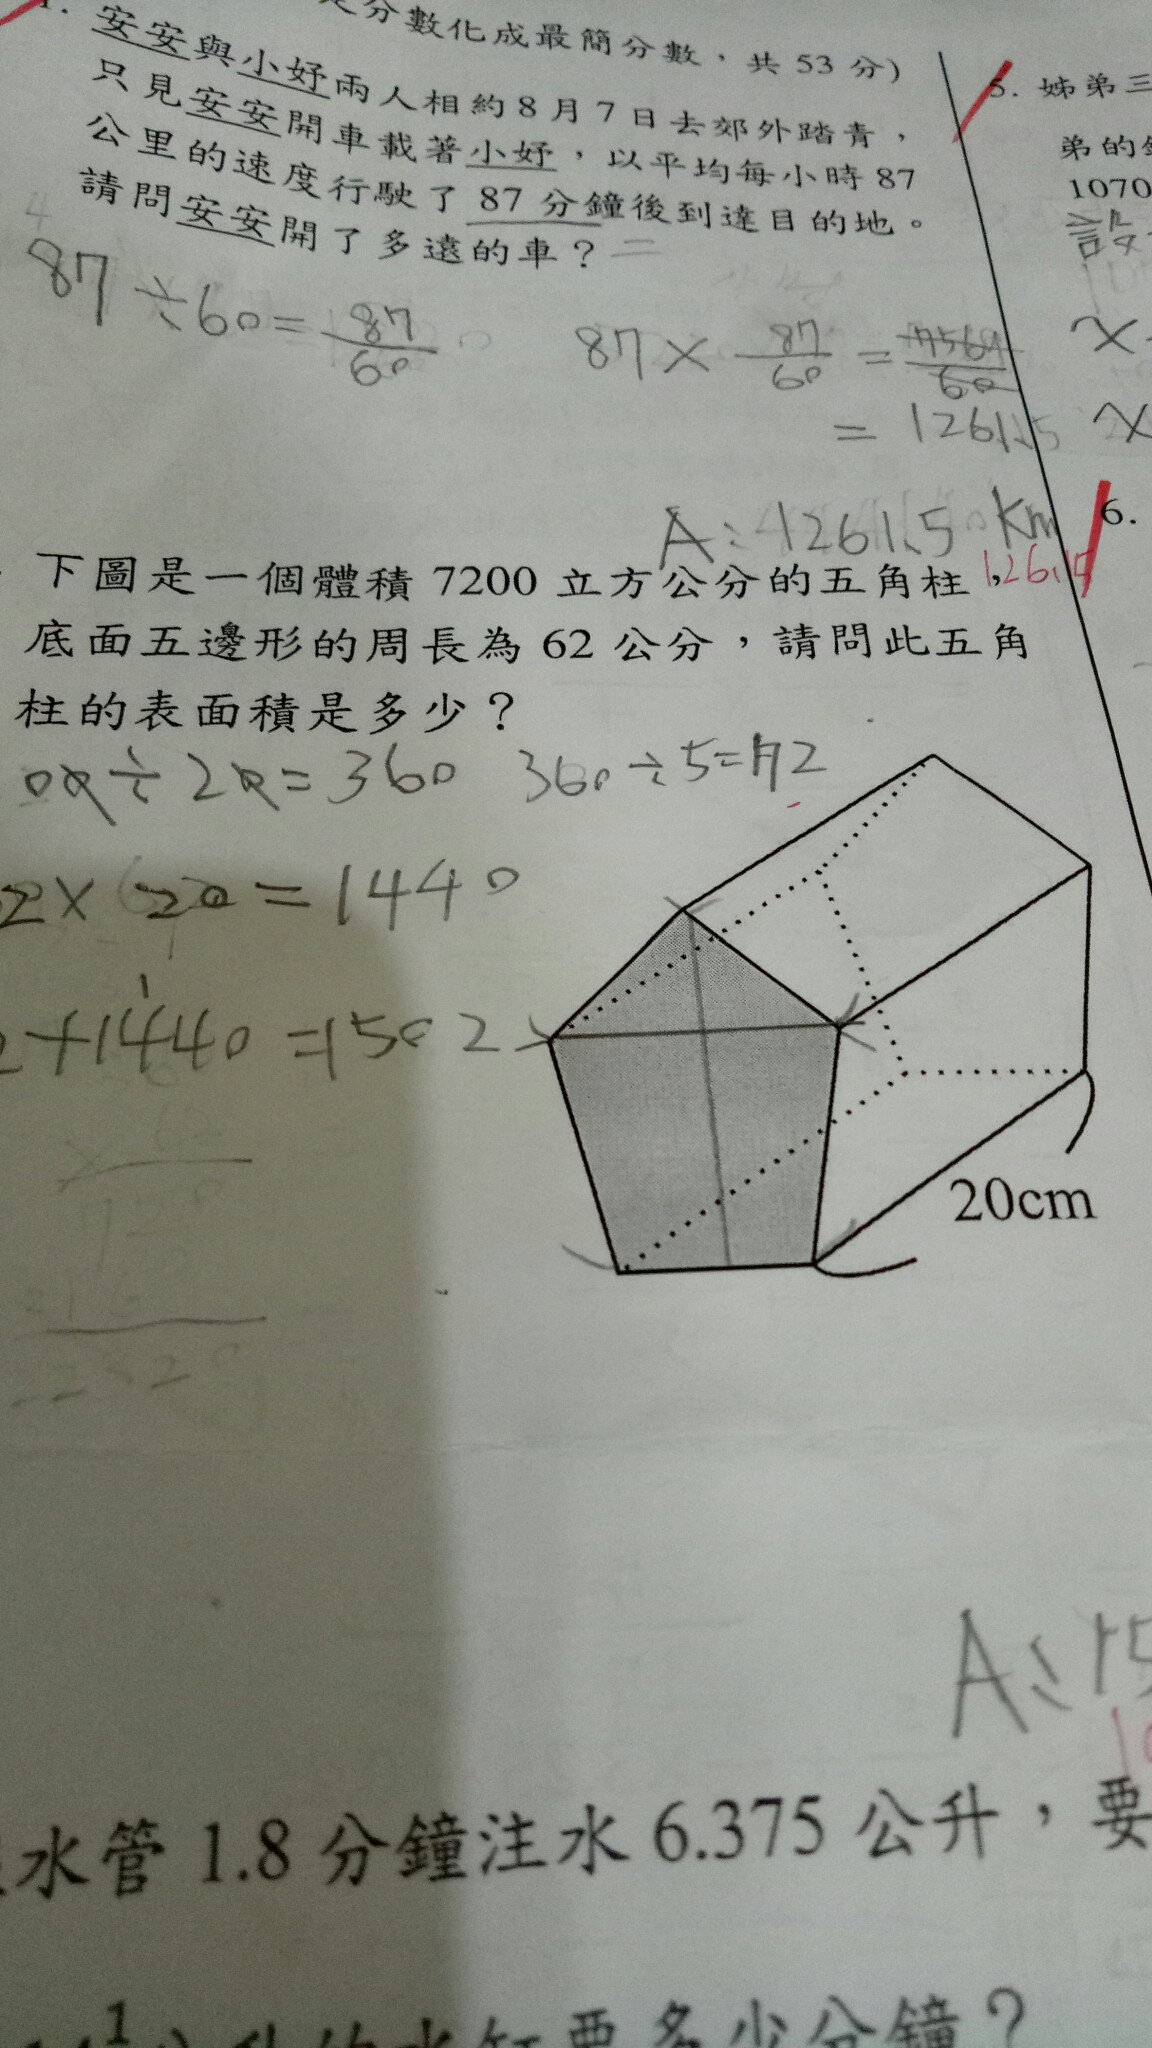 分數化成最簡分數，共 53 分)
1. 安安與小妤兩人相約 8 月 7 日去郊外踏青，
只見安安開車載著小妤，以平均每小時 87
公里的速度行駛了 87 分鐘後到達目的地。
請問安安開了多遠的車？
87 ÷60= 87/60
87 × 87/60 = 7569/60
= 126.15
A: 126.15 km
126.15
下圖是一個體積 7200 立方公分的五角柱，
底面五邊形的周長為 62 公分，請問此五角
柱的表面積是多少？
÷ 20 = 360 360 ÷ 5 = 72
2 × 20 = 1440
2 + 1440 = 1502
20cm
A: 15
水管 1.8 分鐘注水 6.375 公升，要
多少分鐘？
5. 姊弟三
弟的
1070
設
x
x
6.